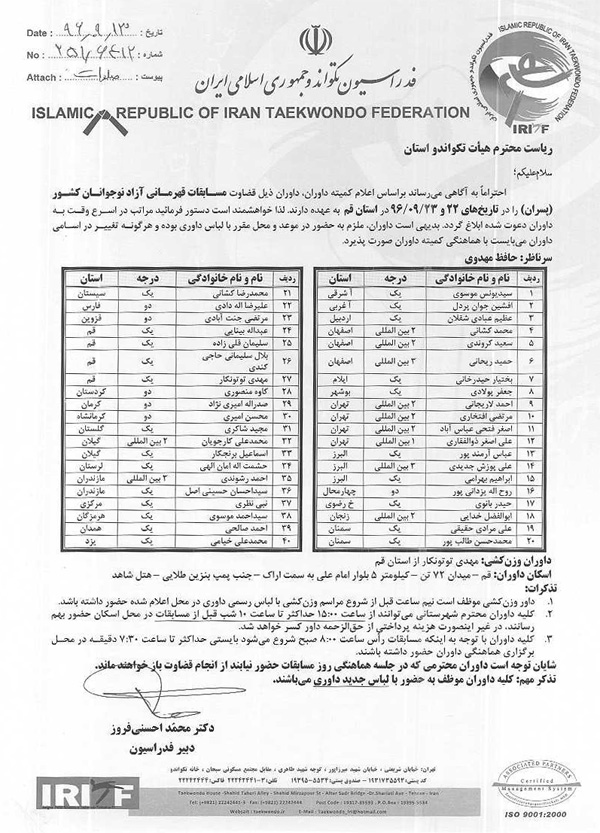 Date : ۹۶, ۹, ۱۳ تاریخ :
No : شماره :
Attach : پیوست :
فدراسیون تکواندو جمهوری اسلامی ایران
ISLAMIC REPUBLIC OF IRAN TAEKWONDO FEDERATION
ISLAMIC REPUBLIC OF IRAN TAEKWONDO FEDERATION
IRITF
ریاست محترم هیأت تکواندو استان
سلام علیکم؛
احتراماً به آگاهی می‌رساند براساس اعلام کمیته داوران، داوران ذیل قضاوت مسابقات قهرمانی آزاد نوجوانان کشور
(پسران) را در تاریخ‌های ۲۲ و ۹۶/۰۹/۲۳ در استان قم به عهده دارند. لذا خواهشمند است دستور فرمائید مراتب در اسرع وقت به
داوران دعوت شده ابلاغ گردد. بدیهی است داوران، ملزم به حضور در موعد و محل مقرر با لباس داوری بوده و هرگونه تغییر در اسامی
داوران می‌بایست با هماهنگی کمیته داوران صورت پذیرد.
سرناظر: حافظ مهدوی
ردیف نام و نام خانوادگی درجه استان
۱ سیدیونس موسوی یک آ شرقی
۲ افشین جوان پردل یک آ غربی
۳ عظیم عبادی شغلان یک اردبیل
۴ محمد کشانی ۲ بین المللی اصفهان
۵ سعید کروندی ۲ بین المللی اصفهان
۶ حمید ریحانی ۳ بین المللی اصفهان
۷ بختیار حیدرخانی یک ایلام
۸ جعفر پولادی یک بوشهر
۹ احمد لاریجانی ۲ بین المللی تهران
۱۰ مرتضی افتخاری ۲ بین المللی تهران
۱۱ اصغر فتحی عباس آباد ۲ بین المللی تهران
۱۲ علی اصغر ذوالفقاری ۱ بین المللی تهران
۱۳ عباس آرمند پور یک البرز
۱۴ علی پوزش جدیدی ۳ بین المللی البرز
۱۵ ابراهیم بهرامی یک مازندران
۱۶ روح اله یزدانی پور دو چهارمحال
۱۷ حیدر بانوی یک خ رضوی
۱۸ ابوالفضل خدایی ۲ بین المللی زنجان
۱۹ علی مرادی حقیقی یک سمنان
۲۰ محمدحسن طالب پور یک سمنان
ردیف نام و نام خانوادگی درجه استان
۲۱ محمدرضا کشانی یک سیستان
۲۲ علیرضا اله دادی دو فارس
۲۳ مرتضی جنت آبادی دو قزوین
۲۴ عبداله بینایی یک قم
۲۵ سلیمان قلی زاده یک قم
۲۶ بلال سلیمانی حاجی کندی یک قم
۲۷ مهدی توتونکار یک قم
۲۸ کاوه منصوری دو کردستان
۲۹ صدراله امیری نژاد دو کرمان
۳۰ محسن امیری دو کرمانشاه
۳۱ مجید شاکری یک گلستان
۳۲ محمدعلی کارجویان ۲ بین المللی گیلان
۳۳ اسماعیل برنجکار یک گیلان
۳۴ حشمت اله امان الهی یک لرستان
۳۵ احمد رشوندی ۳ بین المللی مازندران
۳۶ سیداحسان حسینی اصل یک مازندران
۳۷ نبی نظری یک مرکزی
۳۸ سیداحمد موسوی یک هرمزگان
۳۹ احمد صالحی یک همدان
۴۰ محمدعلی خیامی یک یزد
داوران وزن‌کشی: مهدی توتونکار از استان قم
اسکان داوران: قم – میدان ۷۲ تن – کیلومتر ۵ بلوار امام علی به سمت اراک – جنب پمپ بنزین طلایی – هتل شاهد
تذکرات:
۱. داور وزن‌کشی موظف است نیم ساعت قبل از شروع مراسم وزن‌کشی با لباس رسمی داوری در محل اعلام شده حضور داشته باشد.
۲. کلیه داوران محترم شهرستانی می‌توانند از ساعت ۱۵:۰۰ حداکثر تا ساعت ۱۰ شب قبل از مسابقات در محل اسکان حضور بهم
رسانند، در غیر اینصورت هزینه پرداختی از حق‌الزحمه داور کسر خواهد شد.
۳. کلیه داوران با توجه به اینکه مسابقات رأس ساعت ۸:۰۰ صبح شروع می‌شود بایستی حداکثر تا ساعت ۷:۳۰ دقیقه در محل
برگزاری هماهنگی داوران حضور داشته باشند.
شایان توجه است داوران محترمی که در جلسه هماهنگی روز مسابقات حضور نیابند از انجام قضاوت باز خواهند ماند.
تذکر مهم: کلیه داوران موظف به حضور با لباس جدید داوری می‌باشند.
دکتر محمّد احسنی‌فروز
دبیر فدراسیون
IRITF
تهران: خیابان شریعتی، خیابان شهید میرزاپور، کوچه شهید طاهری، مقابل مجتمع مسکونی سبحان، خانه تکواندو
Taekwondo House -Shahid Taheri Alley - Shahid Mirzapour St - After Sadr Bridge -Dr.Shariati Ave - Tehran - Iran
ASSOCIATED PARTNERS
Certified
Management System
ISO 9001:2000